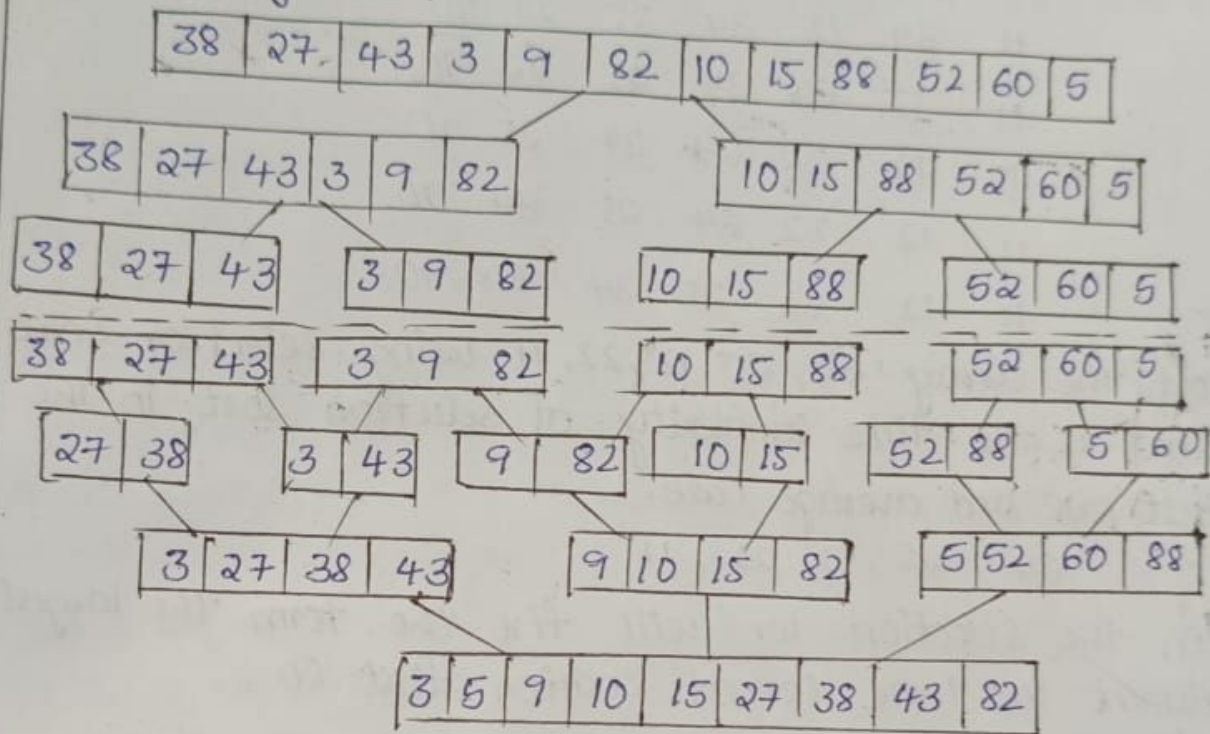 38 27 43 3 9 82 10 15 88 52 60 5
38 27 43 3 9 82 10 15 88 52 60 5
38 27 43 3 9 82 10 15 88 52 60 5
38 27 43 3 9 82 10 15 88 52 60 5
27 38 3 43 9 82 10 15 52 88 5 60
3 27 38 43 9 10 15 82 5 52 60 88
3 5 9 10 15 27 38 43 82